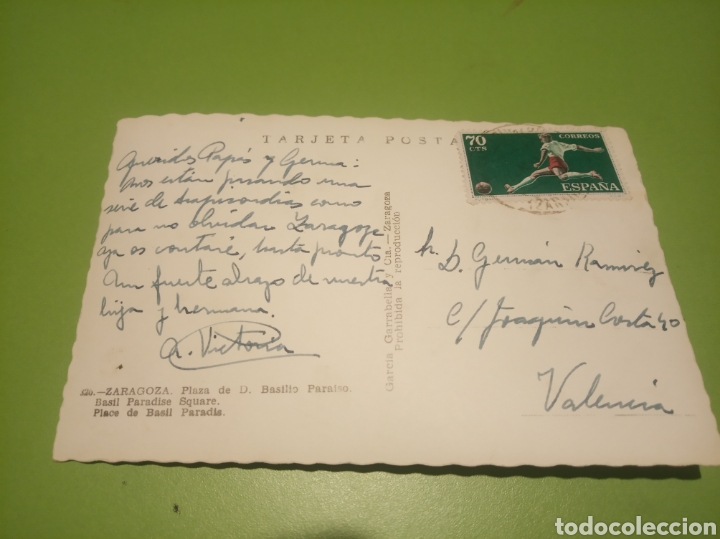 TARJETA POSTA
70
CTS
CORREOS
ESPAÑA
Queridos Papás y Germa:
nos están pasando una
serie de peripecias como
para no olvidar Zaragoza
ya os contaré, hasta pronto
Un fuerte abrazo de vuestra
hija y hermana.
A. Victoria
Garcia Garrabella y Cia.—Zaragoza
Prohibida la reproducción
Sr. D. Germán Ramirez
C/ Joaquin Costa 40
Valencia
.—ZARAGOZA. Plaza de D. Basilio Paraiso.
Basil Paradise Square.
Place de Basil Paradis.
todocoleccion